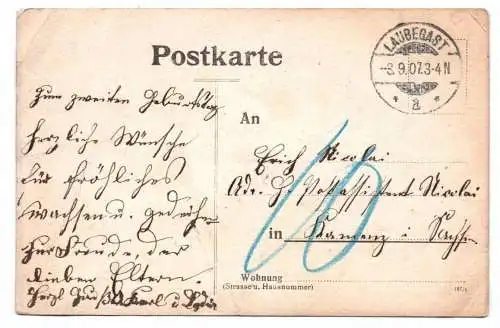 Postkarte
LAUBEGAST
-8.9.07.3-4N
* a *
Zum zweiten Geburtstag
herzliche Wünsche
für fröhliches
wachsen u. gedeihen
zur Freude, der
lieben Eltern.
Herzl. Karl u.
An
Erich Nicolai
Adr. H. Postassistent Nicolai
in Kamenz i. Sachsen
Wohnung
(Strasse u. Hausnummer)
10